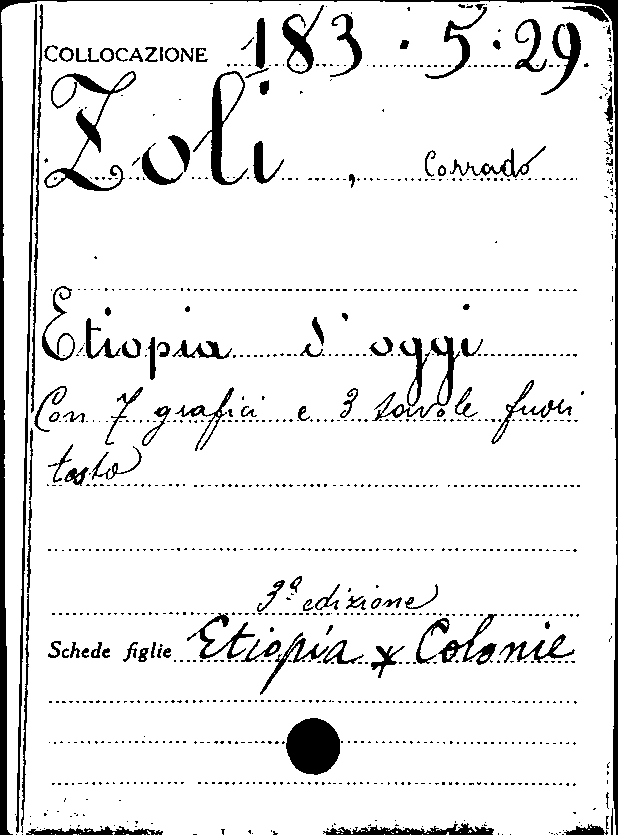 COLLOCAZIONE 183.5.29.
Zoli, Corrado
Etiopia d'oggi
Con 7 grafici e 3 tavole fuori
testo
3ª edizione
Schede figlie Etiopia * Colonie